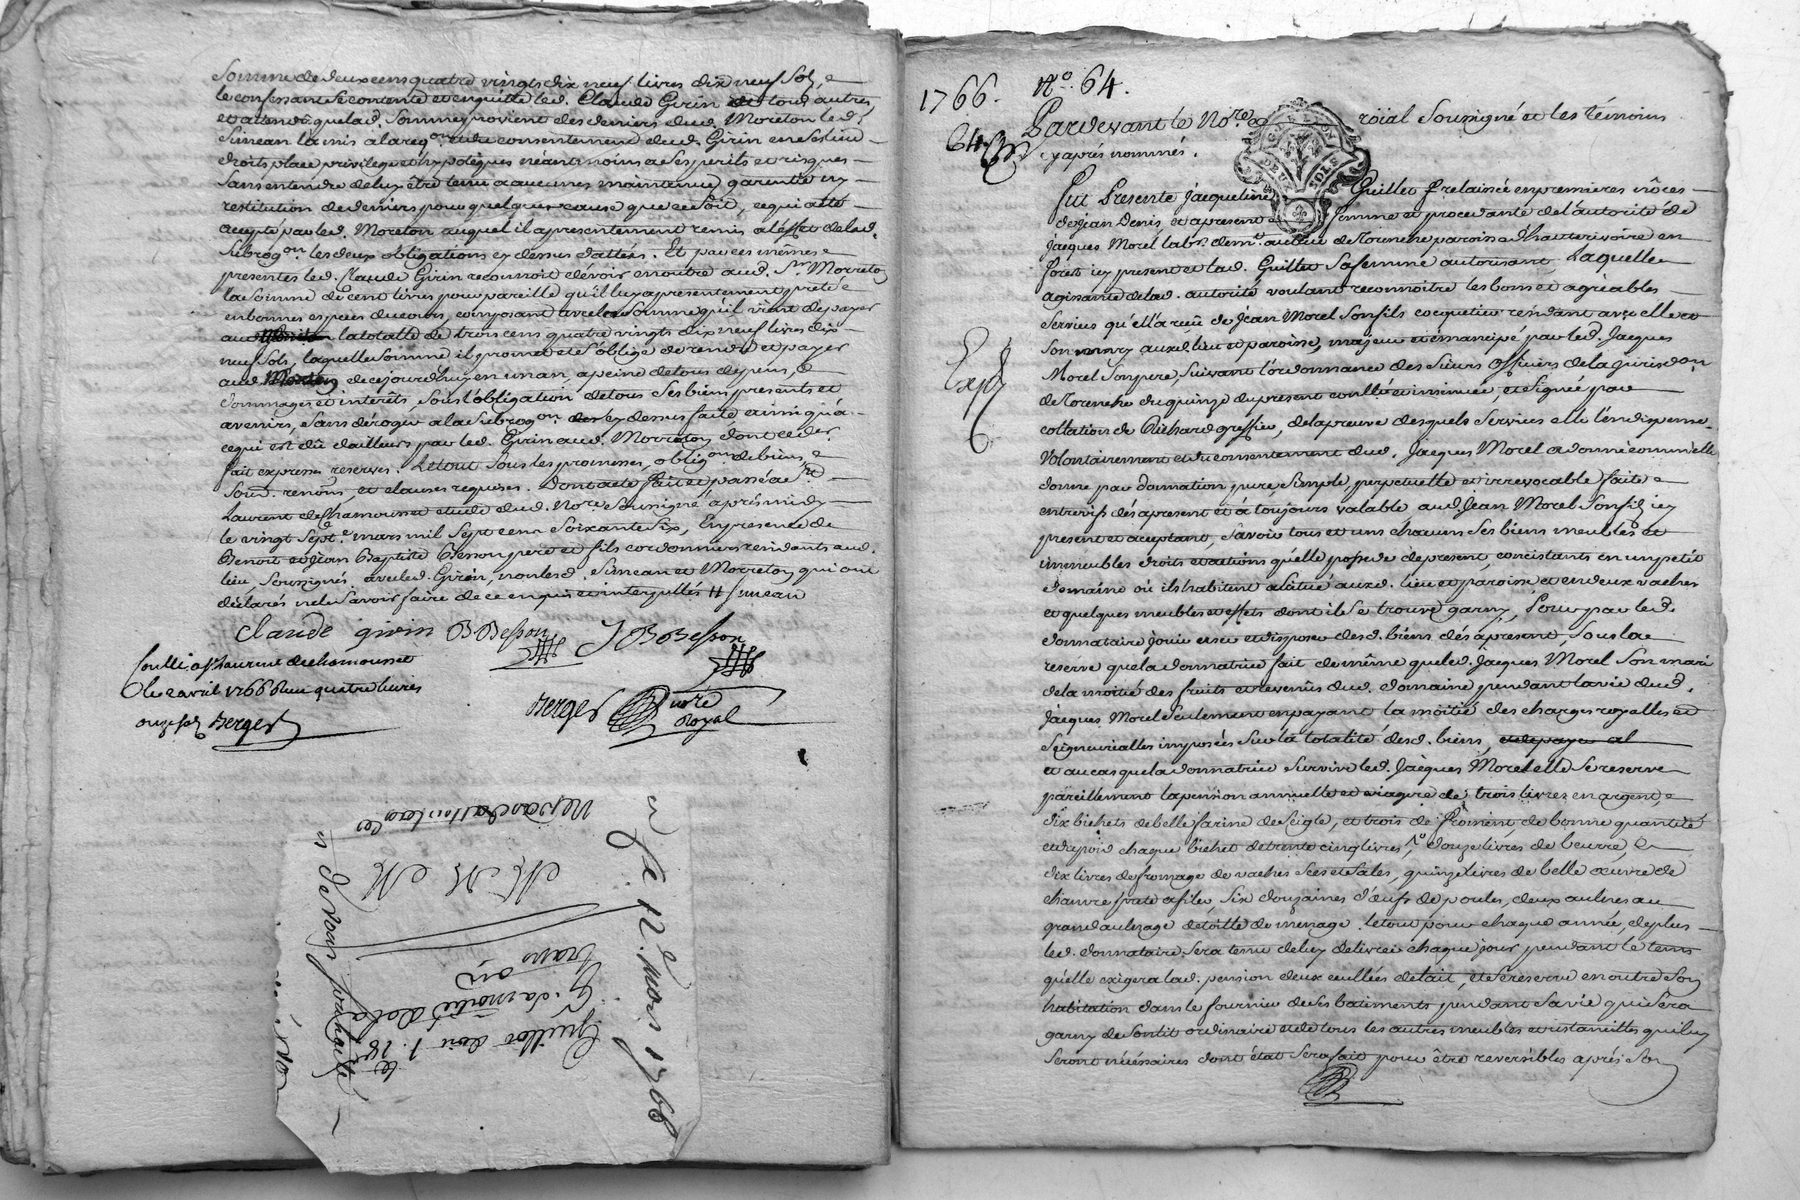 Somme de deux cens quatre vingts dix neuf livres dix neuf sols, e
le confessant se contente et en quitte led. Claude Girin tous autres,
et attendu que lad. Somme provient des deniers dud. Morreton led.
Simean la mis a la req.on et du consentement dud. Girin en ses lieu
droits place privilege et hypoteques neantmoins a ses perils et risques
sans entendre de luy être tenu a aucunes maintenue garentie ny
restitution de deniers pour quelque cause que ce soit, ce qui a été
accepté par led. Morreton auquel il a presentement remis a l'effet de lad.
Subrog.on les deux obligations cy dessus dattées. Et par ces mêmes
presentes led. Claude Girin reconnoit devoir en outre aud. S.r Morreton
la somme de cent livres pour pareille qu'il luy a presentement preté
en bonnes especes du cours, composant avec la somme qu'il vient de payer
aud. la totalle de trois cens quatre vingts dix neuf livres dix
neuf sols, laquelle somme il promet et s'oblige de rendre et payer
aud. Morreton de ce jourd'huy en un an, a peine de tous depens,
dommages et interets, sous l'obligation de tous ses biens presents et
avenirs, sans deroger a la subrog.on cy dessus faite ainsi qu'a
ce qui est dû d'ailleurs par led. Girin aud. Morreton dont led. er
fait expresses reserves. Le tout sous les promesses, oblig.on de biens,
soum. renon.s et clauses requises. Dont acte fait et passé a S.t
Laurent de Chamousset etude dud. No.re soussigné après midy
le vingt sept.e mars mil sept cens soixante six, En presence de
Benoit et Jean Baptiste Besson pere et fils cordonniers residants aud.
lieu, Soussignés avec led. Girin, non lesd. Simean et Morreton qui ont
déclarés ne le savoir faire de ce enquis et interpellés // Simean
Claude girin B Besson J B Besson
Conllé a S.t Laurent de chamousset
le 2 avril 1766 Reçu quatre livres
onze sols Berger
Berger no.re
Royal
du 12.e mars 1766
Guillot doit
G. la moitié de la
1766. N.o 64.
64
Pardevant le No.re roïal Soussigné et les témoins
cy après nommés.
GEN. LYON
DEUX SOLS
Fut Presente Jacqueline Guillet relaissée en premieres nôces
de Jean Denis et a present femme et procedante de l'autorité de
Jacques Morel lab.r dem.t au lieu de Noireche paroisse d'hauterivoire en
forest icy present et lad. Guillet sa femme autorisant, Laquelle
agissante de lad. autorité voulant reconnoitre les bons et agréables
Services qu'ell'a reçu de Jean Morel son fils coquetier résidant avec elle et
son mary auxd. lieu et paroisse, majeur et émancipé par led. Jacques
Morel son pere, suivant l'ordonnance des Sieurs officiers de la jurisd.on
Exp.é
de Noireche du quinze du present conllée et insinuée, et signée par
collation de Richard greffier, de la preuve desquels services elle l'en dispense
volontairement et du consentement dud. Jacques Morel a donné comm'elle
donne par donation pure, simple, perpetuelle et irrevocable faite
entre vifs des a present et a toujours valable aud. Jean Morel son fils icy
present et aceptant, savoir tous et uns chacuns ses biens meubles et
immeubles droits et actions qu'elle possede de present, concistants en un petit
domaine où ils habitent a situé auxd. lieu et paroisse et en deux vaches
et quelques meubles et effets dont il se trouve garny, Pour par led.
donnataire jouir user et disposer desd. biens dés a present, sous la
reserve que la donnatrice fait de même que led. Jacques Morel son mari
de la moitié des fruits et revenûs dud. domaine pendant la vie dud.
Jacques Morel seulement en payant la moitié des charges royalles et
seigneurialles imposées sur la totalité desd. biens, et depayer al
et au cas que la donnatrice survive led. Jacques Morel elle se reserve
pareillement la pension annuelle et viagere de trois livres en argent,
dix bichets de belle farine de seigle, et trois de froment de bonne quantité
et du poid chaque bichet de trente cinq livres, douze livres de beurre,
dix livres de fromage de vaches secs et salés, quinze livres de belle œuvre de
chanvre preté a filer, six douzaines d'œufs de poules, deux aulnes au
grand aulnage de toille de menage. le tout pour chaque année, de plus
led. donnataire sera tenu de luy delivrer chaque jour pendant le tems
qu'elle exigera lad. pension deux ceullées de lait, et se reserve en outre son
habitation dans le fournier de ses batiments pendant sa vie qui sera
garny de son lit ordinaire et de tous les autres meubles et ustancilles qui luy
seront nécessaires dont état sera fait pour être reversibles après son